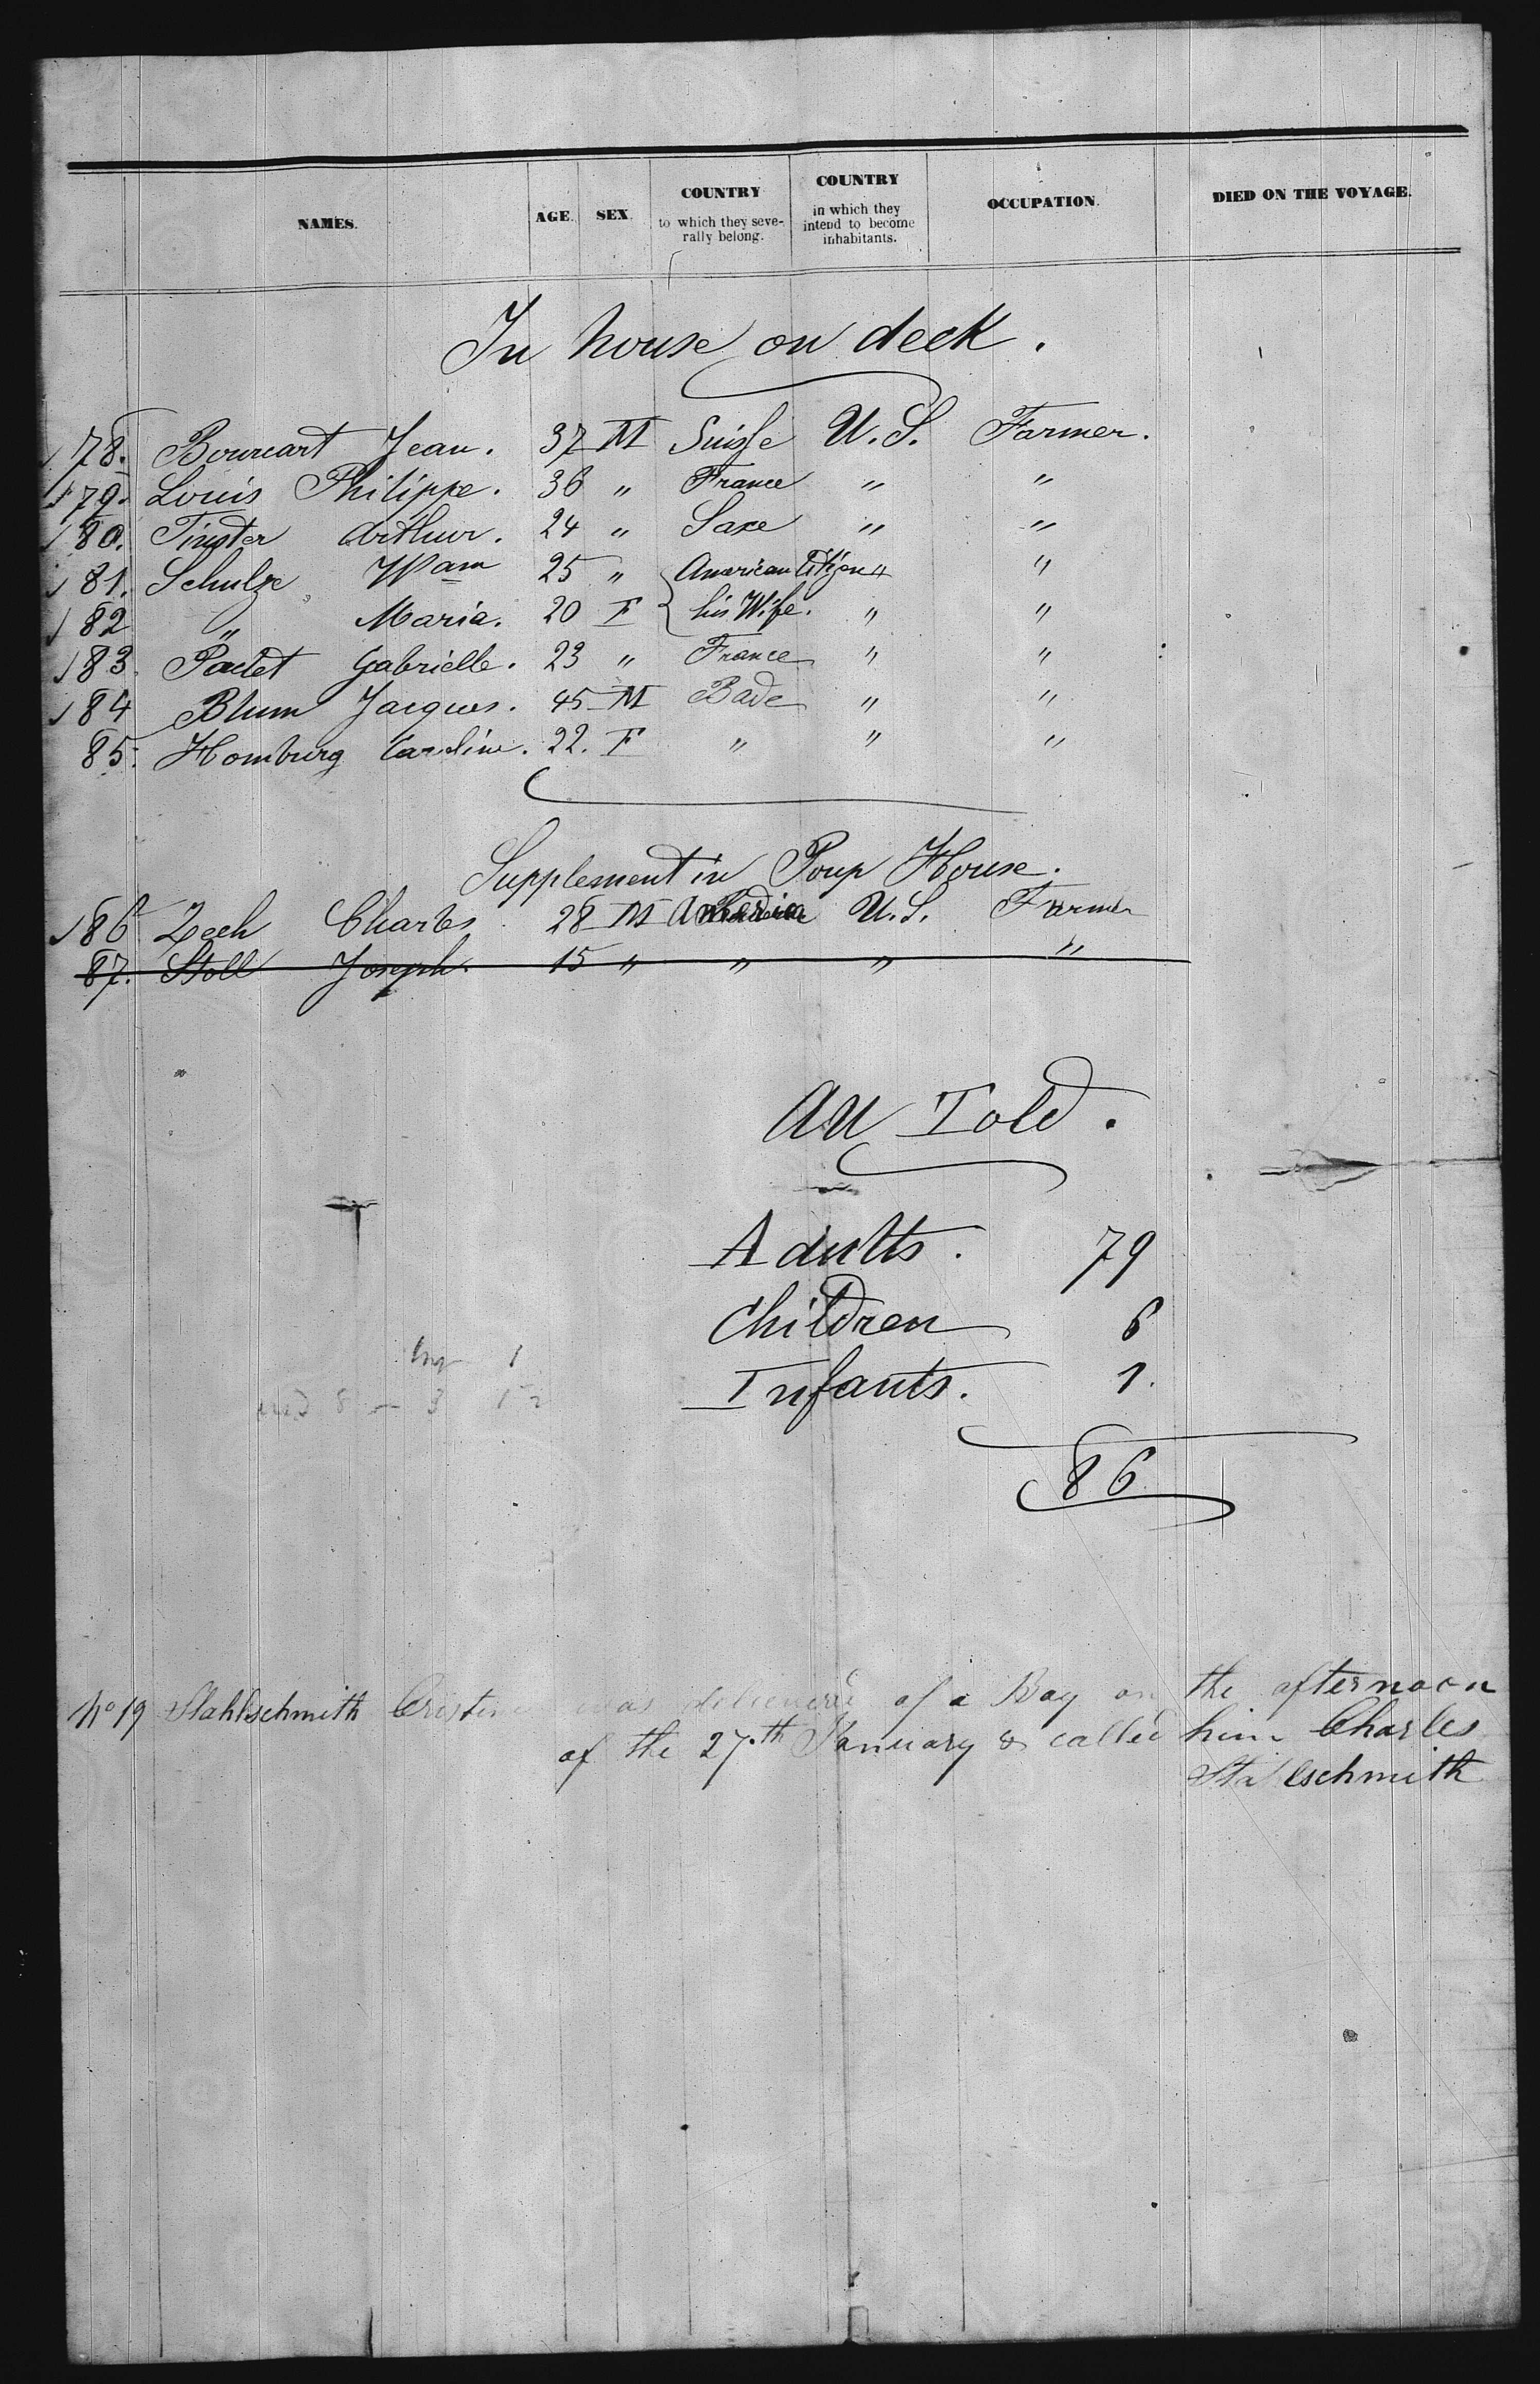 NAMES. AGE. SEX. COUNTRY to which they seve- rally belong. COUNTRY in which they intend to become inhabitants. OCCUPATION. DIED ON THE VOYAGE.
In house on deck.
78. Bourcart Jean. 37 M Suisse U.S. Farmer.
79. Louis Philippe. 36 " France " "
80. Finster Arthur. 24 " Saxe " "
81. Schulze Wam 25 " American Citizen " "
82 " Maria. 20 F his Wife. " "
83. Padet Gabrielle. 23 " France " "
84 Blum Jacques. 45 M Bade " "
85. Homburg Caroline. 22. F " " "
Supplement in Poup House.
86 Zech Charles 28 M America U.S. Farmer
87. Stoll Joseph. 15 " " " "
All Told.
Adults. 79
Children 6
Infants. 1.
86
No 19 Stahlschmith Cristine was delivered of a Boy on the afternoon
of the 27.th January & called him Charles
Stahlschmith